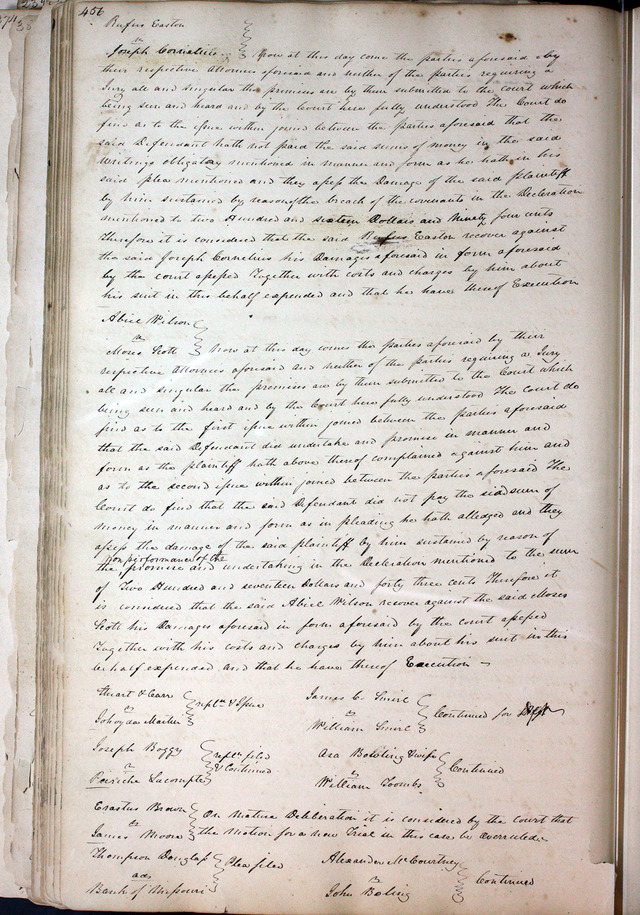 456
Rufus Easton
vs
Joseph Cornelius Now at this day come the parties aforesaid by
their respective Attornies aforesaid and neither of the parties requiring a
Jury all and singular the premises are by them submitted to the court which
being seen and heard and by the Court here fully understood The Court do
find as to the issue within joined between the Parties aforesaid that the
said Defendant hath not paid the said sums of money in the said
writings obligatory mentioned in manner and form as he hath in his
said plea mentioned and they assess the Damage of the said plaintiff
by him sustained by reason of the breach of the covenants in the Declaration
mentioned to two Hundred and sixteen Dollars and Ninety four cents
Therefore it is considered that the said Rufus Easton recover against
the said Joseph Cornelius his Damages aforesaid in form aforesaid
by the court assessed Together with costs and charges by him about
his suit in this behalf expended and that he have thereof Execution
Abiel Wilson
vs
Moses Scott Now at this day comes the parties aforesaid by their
respective Attornies aforesaid and neither of the Parties requiring a Jury
all and singular the premises are by them submitted to the Court which
being seen and heard and by the Court here fully understood The Court do
find as to the first issue within joined between the parties aforesaid
that the said Defendant did undertake and promise in manner and
form as the plaintiff hath above thereof complained against him and
as to the second issue within joined between the parties aforesaid The
Court do find that the said Defendant did not pay the said sum of
money in manner and form as in pleading he hath alledged and they
assess the damage of the said plaintiff by him sustained by reason of
non performance of the
the promise and undertaking in the Declaration mentioned to the sum
of Two Hundred and seventeen Dollars and forty three cents Therefore it
is considered that the said Abiel Wilson recover against the said Moses
Scott his Damages aforesaid in form aforesaid by the court assessed
Together with his costs and charges by him about his suit in this
behalf expended and that he have thereof Execution
Stuart & Carr
vs repln & Issue
James C. Smirl
vs Continued for
William Smirl
Joseph Boggy
vs repln filed
& Continued
Asa Bowling & wife
vs Continued
William Toombs
Erastus Brown
vs On mature Deliberation it is considered by the court that
James Moore the Motion for a new Trial in this case be overruled
Thompson Douglass
ads Plea filed
Bank of Missouri
Alexander McCourtney
vs Continued
John Boling